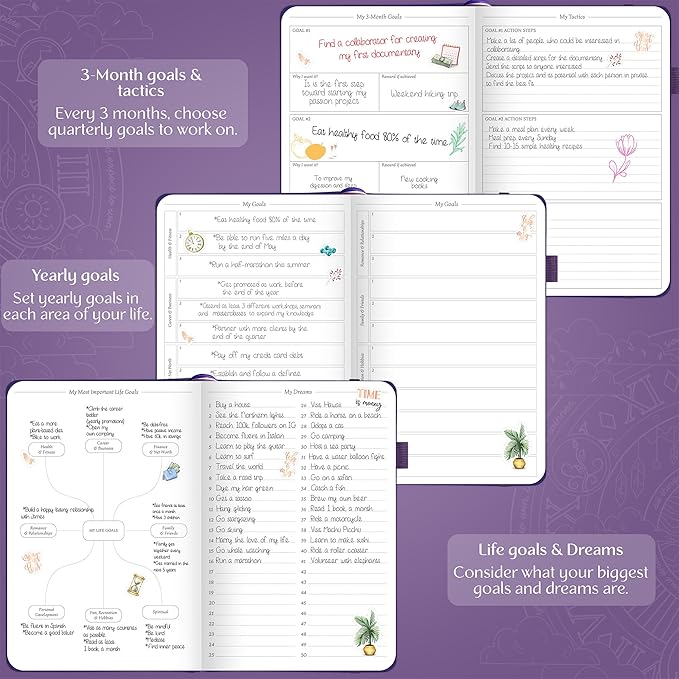 3-Month goals &
tactics
Every 3 months, choose
quarterly goals to work on.
My 3-Month Goals
GOAL #1
Find a collaborator for creating
my first documentary
Why I want it?
It is the first step
toward starting my
passion project
Reward if achieved
Weekend hiking trip
GOAL #2
Eat healthy food 80% of the time
Why I want it?
To improve my
Reward if achieved
New cooking
books
My Tactics
GOAL #1 ACTION STEPS
Make a list of people who could be interested in
collaborating
Create a detailed script for the documentary
Send the script to anyone interested
Discuss the project and its potential with each person in private
to find the best fit
GOAL #2 ACTION STEPS
Make a meal plan every week
Meal prep every Sunday
Find 10-15 simple healthy recipes
Yearly goals
Set yearly goals in
each area of your life.
My Goals
Health & Fitness
1
*Eat healthy food 80% of the time
2
*Be able to run five miles a day
by the end of May
3
*Run a half-marathon this summer
Career & Business
1
*Get promoted at work before
the end of the year
2
*Attend at least 3 different workshops, seminars
and masterclasses to expand my knowledge
3
*Partner with more clients by the
end of the quarter
1
*Pay off my credit card debt
2
*Establish and follow a definite
My Goals
Romance & Relationships
1
2
3
Family & Friends
1
2
3
1
2
My Most Important Life Goals
*Eat a more
plant-based diet
*Bike to work
Health
& Fitness
*Climb the career
ladder
(yearly promotions)
*Open my
own company
Career &
Business
*Be debt-free
*Have passive income
*Have 10k in savings
Finance
& Net Worth
*Build a happy lasting relationship
with James
Romance
& Relationships
MY LIFE GOALS
*See friends at least
once a month
*Have 3 children
Family
& Friends
*Family gets
together every
weekend
*Get married in the
next 5 years
Personal
Development
*Be fluent in Spanish
*Become a good baker
Fun, Recreation
& Hobbies
*Visit as many countries
as possible
*Read at least
1 book a month
Spiritual
*Be mindful
*Be kind
*Meditate
*Find inner peace
My Dreams
TIME
is money
1 Buy a house
2 See the Northern lights
3 Reach 100k followers on IG
4 Become fluent in Italian
5 Learn to play the guitar
6 Learn to surf
7 Travel the world
8 Take a road trip
9 Dye my hair green
10 Get a tattoo
11 Hang gliding
12 Go stargazing
13 Go skiing
14 Marry the love of my life
15 Go whale watching
16 Run a marathon
17
18
19
20
21
22
23
24
25
26 Visit Hawaii
27 Ride a horse on a beach
28 Adopt a cat
29 Go camping
30 Host a tea party
31 Have a water balloon fight
32 Have a picnic
33 Go on a safari
34 Catch a fish
35 Brew my own beer
36 Read 1 book a month
37 Ride a motorcycle
38 Visit Machu Picchu
39 Learn to make sushi
40 Ride a roller coaster
41 Volunteer with elephants
42
43
44
45
46
47
48
49
50
Life goals & Dreams
Consider what your biggest
goals and dreams are.